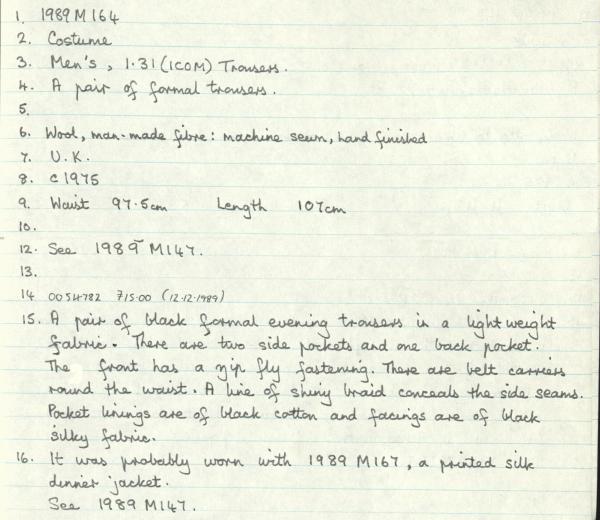 1. 1989 M 164
2. Costume
3. Men's, 1.31 (ICOM) Trousers.
4. A pair of formal trousers.
5.
6. Wool, man-made fibre: machine sewn, hand finished
7. U.K.
8. c 1975
9. Waist 97.5cm Length 107cm
10.
12. See 1989 M147.
13.
14 0054782 715.00 (12.12.1989)
15. A pair of black formal evening trousers in a light weight
fabric. There are two side pockets and one back pocket.
The front has a zip fly fastening. There are belt carriers
round the waist. A line of shiny braid conceals the side seams.
Pocket linings are of black cotton and facings are of black
silky fabric.
16. It was probably worn with 1989 M167, a printed silk
dinner jacket.
See 1989 M147.